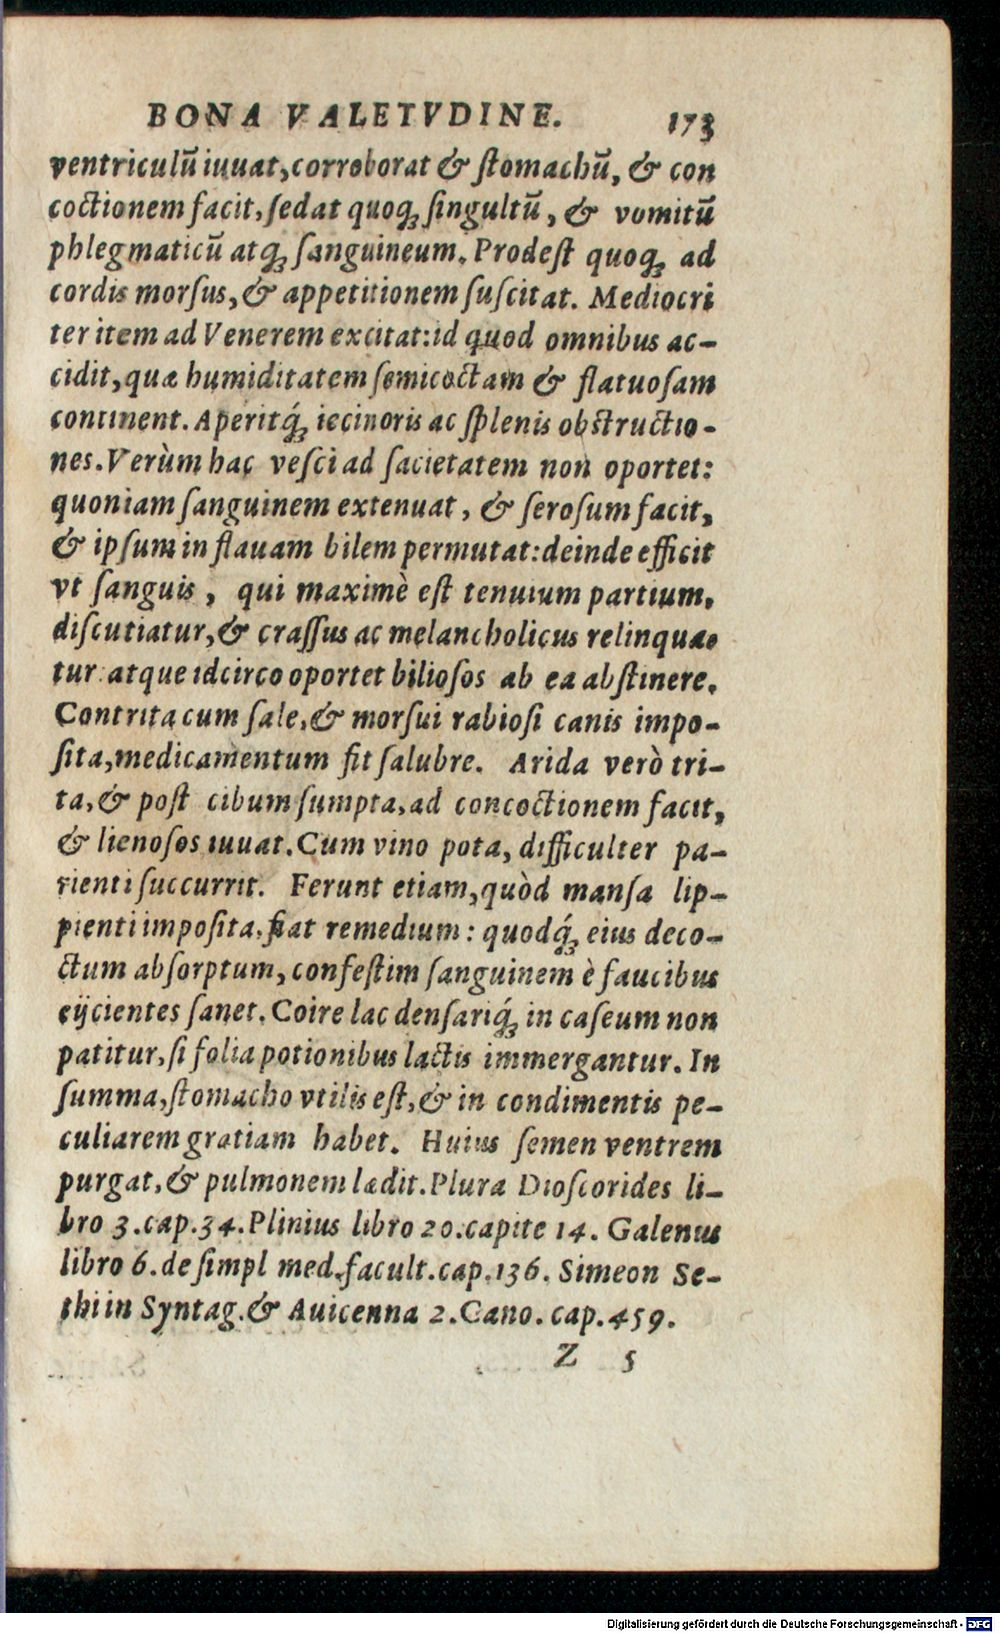 BONA VALETVDINE. 173
ventriculū iuuat, corroborat & ſtomachū, & con
coctionem facit, ſedat quoq; ſingultū, & vomitū
phlegmaticū atq; ſanguineum. Prodeſt quoq; ad
cordis morſus, & appetitionem ſuſcitat. Mediocri
ter item ad Venerem excitat: id quod omnibus ac-
cidit, quæ humiditatem ſemicoctam & flatuoſam
continent. Aperitq́; iecinoris ac ſplenis obſtructio-
nes. Verùm hac veſci ad ſacietatem non oportet:
quoniam ſanguinem extenuat, & ſeroſum facit,
& ipſum in flauam bilem permutat: deinde efficit
vt ſanguis, qui maximè eſt tenuium partium,
diſcutiatur, & craſſus ac melancholicus relinqua-
tur. atque idcirco oportet bilioſos ab ea abſtinere.
Contrita cum ſale, & morſui rabioſi canis impo-
ſita, medicamentum fit ſalubre. Arida verò tri-
ta, & poſt cibum ſumpta, ad concoctionem facit,
& lienoſos iuuat. Cum vino pota, difficulter pa-
rienti ſuccurrit. Ferunt etiam, quòd manſa lip-
pienti impoſita, fiat remedium: quodq́; eius deco-
ctum abſorptum, confeſtim ſanguinem è faucibus
eijcientes ſanet. Coire lac denſariq́; in caſeum non
patitur, ſi folia potionibus lactis immergantur. In
ſumma, ſtomacho vtilis eſt, & in condimentis pe-
culiarem gratiam habet. Huius ſemen ventrem
purgat, & pulmonem lædit. Plura Dioſcorides li-
bro 3. cap. 34. Plinius libro 20. capite 14. Galenus
libro 6. de ſimpl med. facult. cap. 136. Simeon Se-
thi in Syntag. & Auicenna 2. Cano. cap. 459.
Z 5
Digitalisierung gefördert durch die Deutsche Forschungsgemeinschaft - DFG